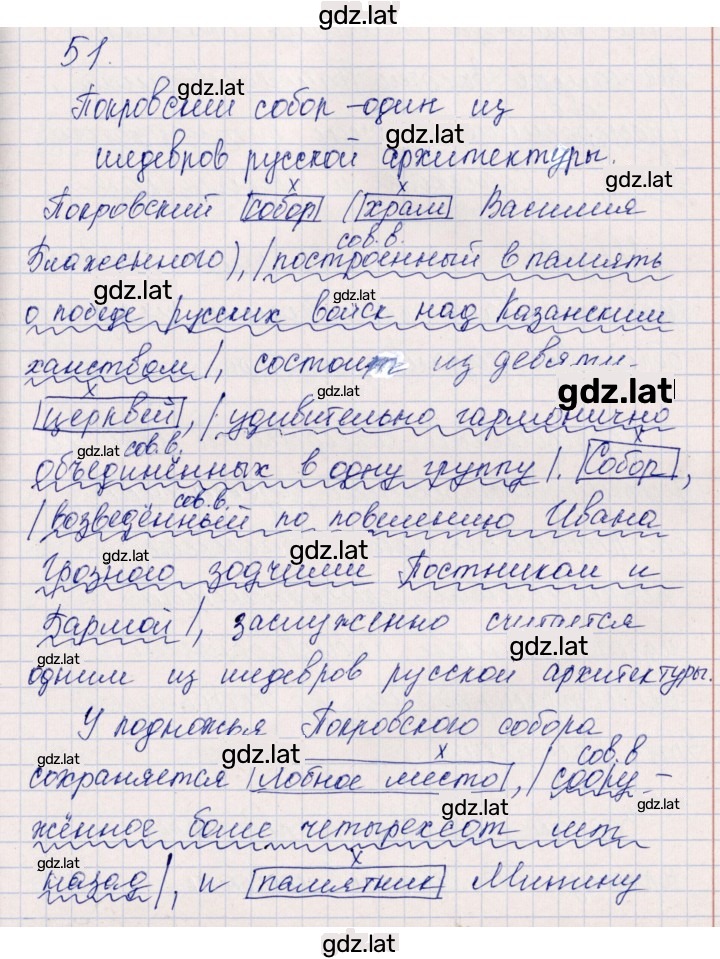 gdz.lat
51.
gdz.lat
Покровский собор – один из
gdz.lat
шедевров русской архитектуры.
gdz.lat
х х
Покровский собор (храм Василия
сов. в.
Блаженного), |построенный в память
gdz.lat gdz.lat
о победе русских войск над Казанским
ханством|, состоит из девяти
gdz.lat gdz.lat
х
церквей, |удивительно гармонично
gdz.lat сов. в. х
объединённых в одну группу|. Собор,
сов. в.
|возведённый по повелению Ивана
gdz.lat gdz.lat
Грозного зодчими Постником и
Бармой|, заслуженно считается
gdz.lat gdz.lat
одним из шедевров русской архитектуры.
У подножья Покровского собора
gdz.lat gdz.lat х сов. в
сохраняется Лобное место, |соору-
gdz.lat gdz.lat
жённое более четырехсот лет
gdz.lat х
назад|, и памятник Минину
gdz.lat